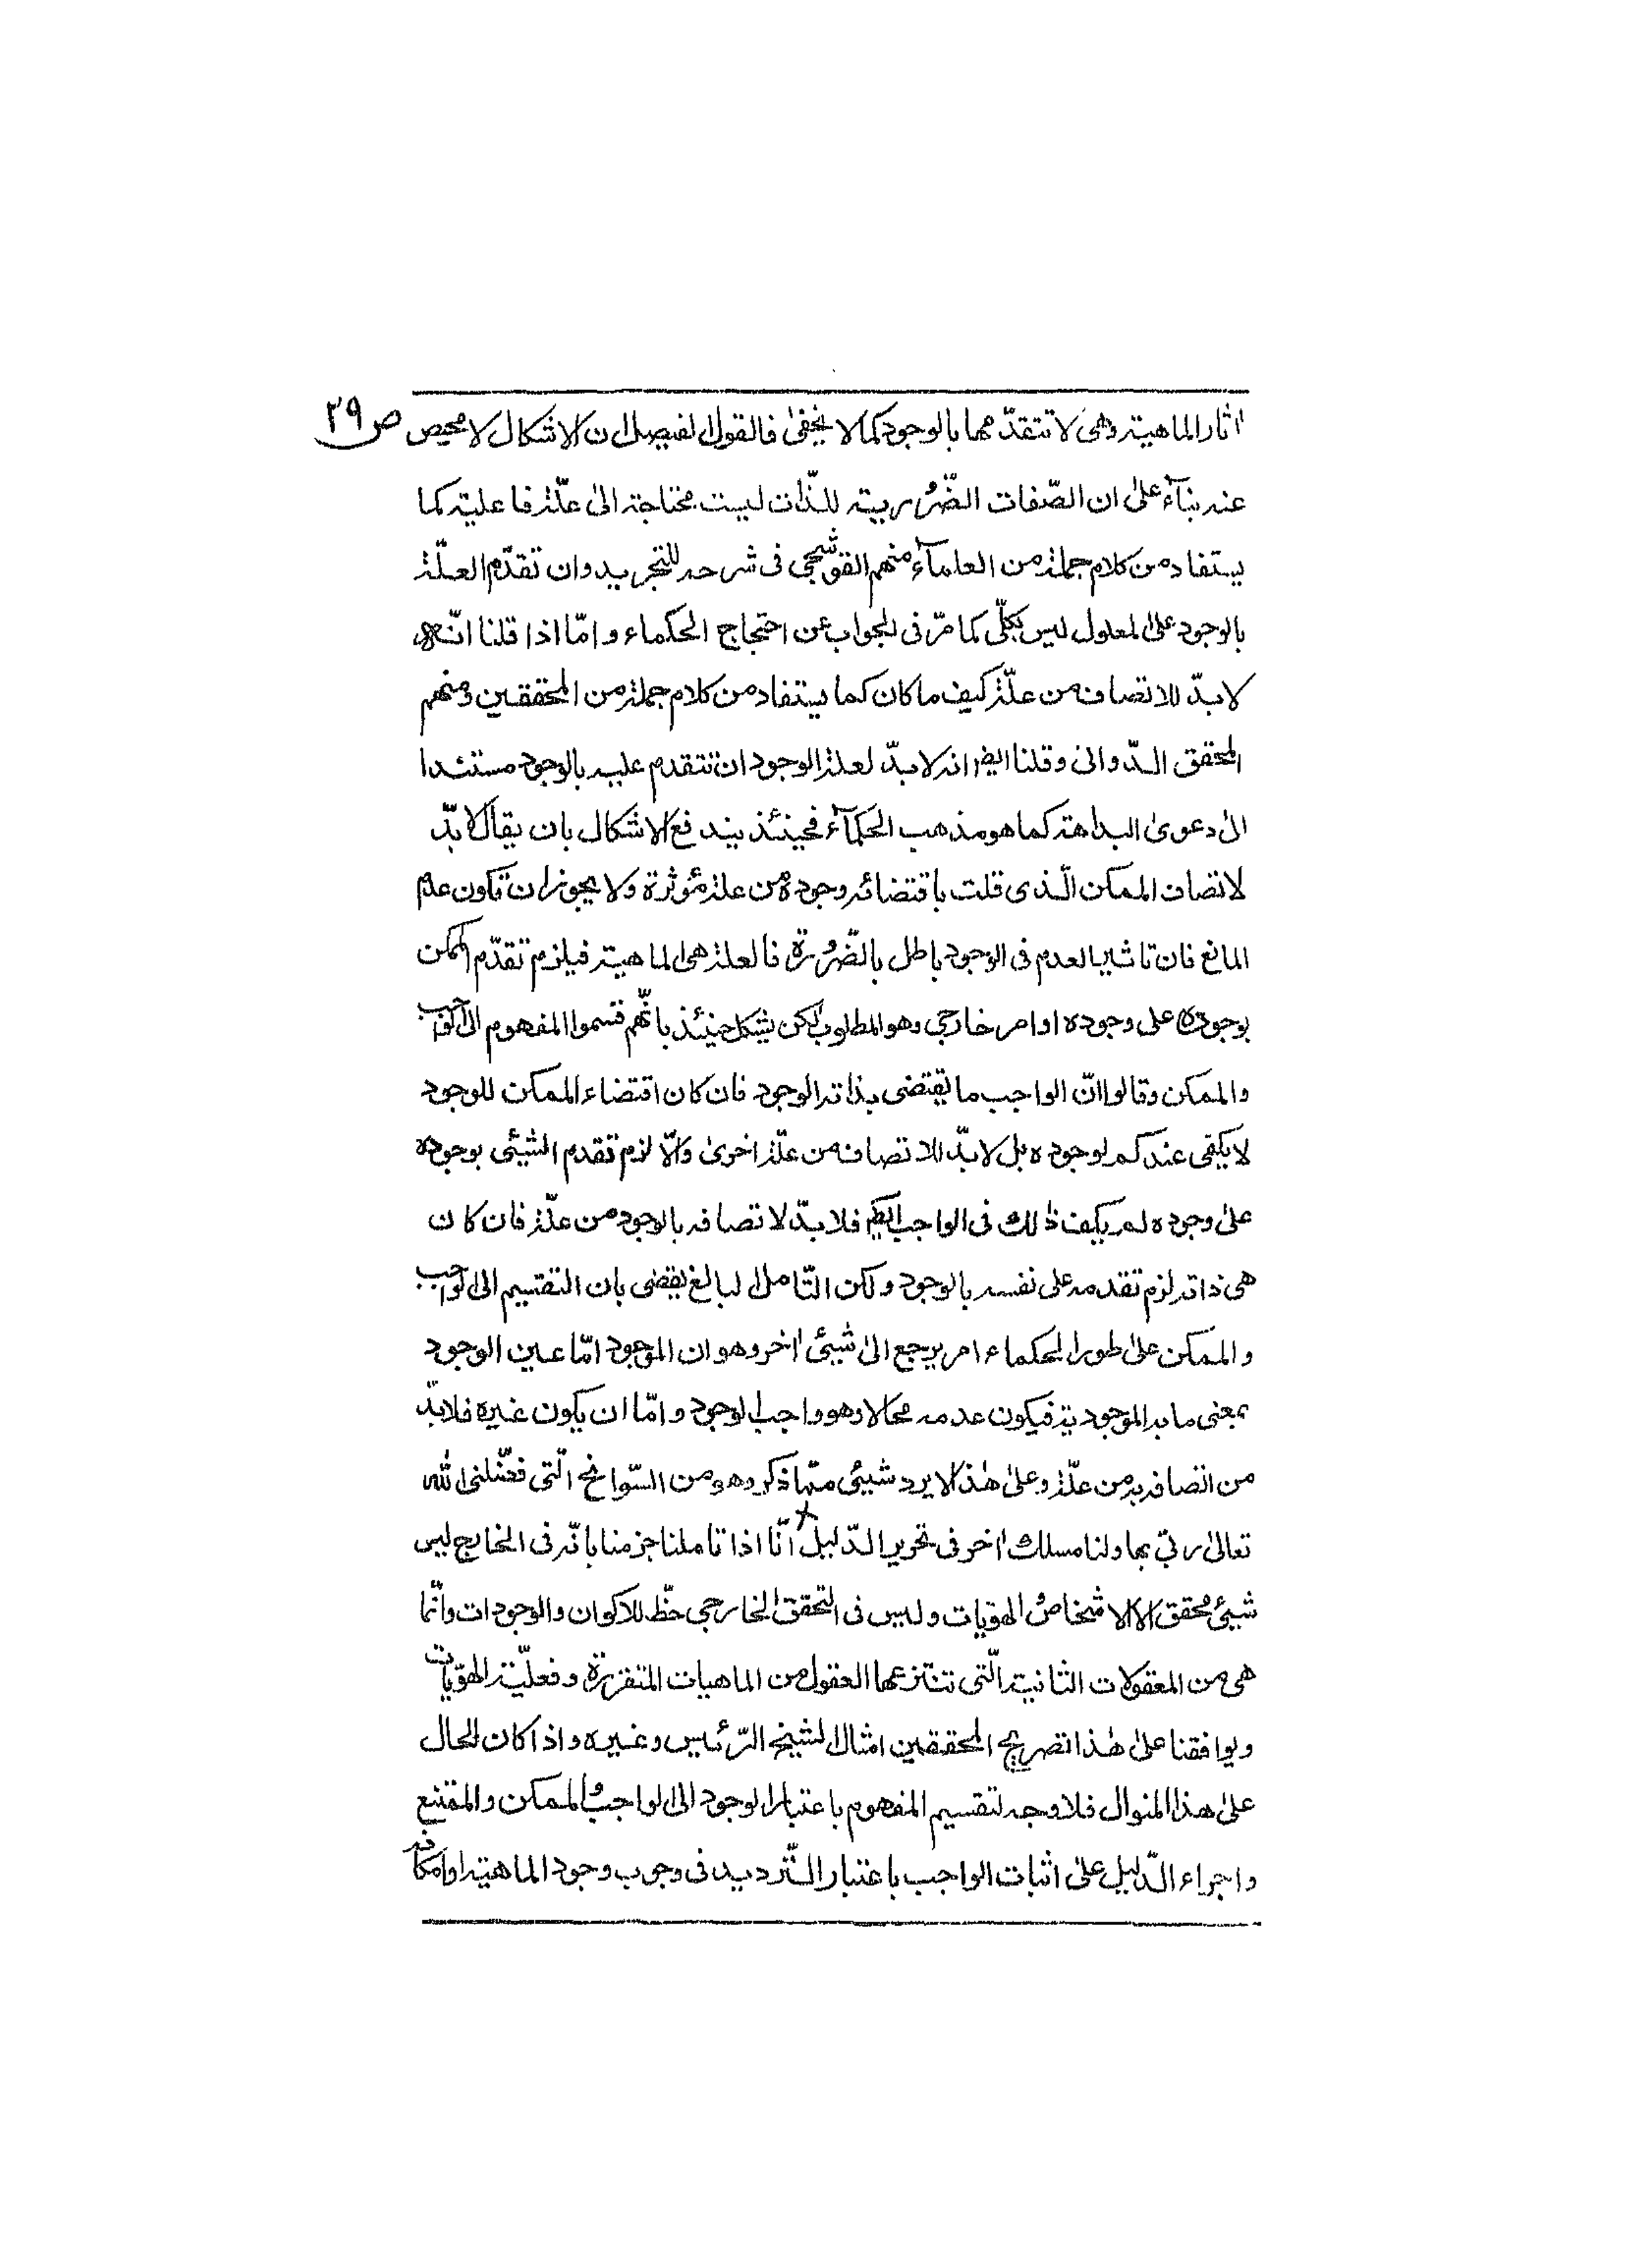 اثار الماهية وهى لا تتقدّمها بالوجود كما لا يخفىٰ فالقول الفيصل ان الاشكال لا محيص ص ٢٩
عنه بنآء علىٰ ان الصّفات الضّرورية للذّات ليست محتاجة الىٰ علّة فاعلية كما
يستفاد من كلام جملة من العلمآء منهم القوشجى فى شرحه للتجريد وان تقدّم العلّة
بالوجود علىٰ المعلول ليس بكلّى كما مرّ فى الجواب عن احتجاج الحكماء وامّا اذا قلنا انّه
لا بدّ للاتصاف من علّة كيف ما كان كما يستفاد من كلام جملة من المحققين ومنهم
المحقق الدّوانى وقلنا ايضا انه لا بدّ لعلة الوجود ان تتقدم عليه بالوجود مستندا
الىٰ دعوى البداهة كما هو مذهب الحكمآء فحينئذ يندفع الاشكال بان يقال لا بدّ
لاتصاف الممكن الّذى قلت باقتضائه وجوده من علة مؤثرة ولا يجوز ان تكون عدم
المانع فان تاثير العدم فى الوجود باطل بالضّرورة فالعلة هى الماهية فيلزم تقدّم الممكن
بوجوده على وجوده او امر خارجى وهو المطلوب لكن يشكل حينئذ بانّهم قسموا المفهوم الى الواجب
والممكن وقالوا انّ الواجب ما يقتضى بذاته الوجود فان كان اقتضاء الممكن للوجود
لا يكفى عندكم لوجوده بل لا بدّ للاتصاف من علّة اخرىٰ والّا لزم تقدم الشيئى بوجوده
علىٰ وجوده لم يكف ذٰلك فى الواجب ايضا فلا بدّ لاتصافه بالوجود من علّة فان كان
هى ذاته لزم تقدمه على نفسه بالوجود ولكن التّامل البالغ يقضى بان التقسيم الى الواجب
والممكن علىٰ طور الحكماء امر يرجع الىٰ شيئى اخر وهو ان الموجود امّا عين الوجود
بمعنى ما به الموجودية فيكون عدمه محالا وهو واجب الوجود وامّا ان يكون غيره فلا بدّ
من اتصافه به من علّة وعلىٰ هٰذا لا يرد شيئى ممّا ذكر وهو من السّوانح الّتى فضّلنى الله
تعالىٰ ربّى بها ولنا مسلك اخر فى تحرير الدّليل انّا اذا تاملنا جزمنا بانّه فى الخارج ليس
شيئى محقق الّا الاشخاص والهويات وليس فى التحقق الخارجى حظّ للاكوان والوجودات وانّما
هى من المعقولات الثانية الّتى تنتزعها العقول من الماهيات المتقررة وفعليّة الهوّيات
ويوافقنا علىٰ هٰذا تصريح المحققين امثال الشيخ الرّئيس وغيره واذا كان الحال
علىٰ هذا المنوال فلا وجه لتقسيم المفهوم باعتبار الوجود الى الواجب والممكن والممتنع
واجراء الدّليل علىٰ اثبات الواجب باعتبار التّرديد فى وجوب وجود الماهية او امكانه